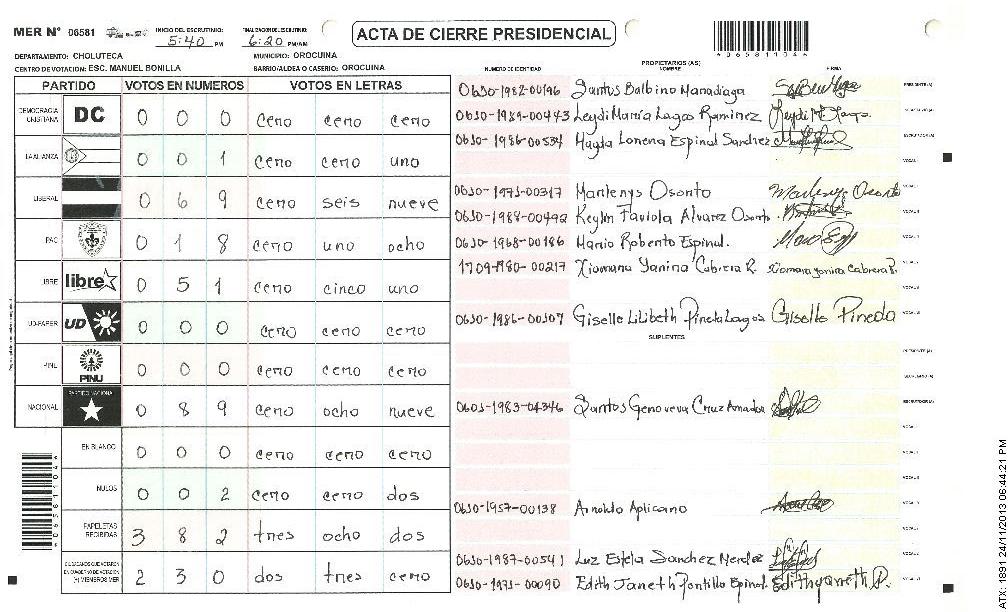 MER N° 06581 INICIO DEL ESCRUTINIO: 5:40 PM FINALIZACION DEL ESCRUTINIO: 6:20 PM/AM ACTA DE CIERRE PRESIDENCIAL
DEPARTAMENTO: CHOLUTECA MUNICIPIO: OROCUINA
CENTRO DE VOTACION: ESC. MANUEL BONILLA BARRIO/ALDEA O CASERIO: OROCUINA
PARTIDO VOTOS EN NUMEROS VOTOS EN LETRAS
DEMOCRACIA CRISTIANA DC 0 0 0 cero cero cero
LA ALIANZA 0 0 1 cero cero uno
LIBERAL 0 6 9 cero seis nueve
PAC 0 1 8 cero uno ocho
LIBRE libre 0 5 1 cero cinco uno
UD-FAPER UD 0 0 0 cero cero cero
PINU PINU 0 0 0 cero cero cero
NACIONAL PARTIDO NACIONAL 0 8 9 cero ocho nueve
EN BLANCO 0 0 0 cero cero cero
NULOS 0 0 2 cero cero dos
PAPELETAS RECIBIDAS 3 8 2 tres ocho dos
CIUDADANOS QUE VOTARON EN CUADERNO DE VOTACION (+) MIEMBROS MER 2 3 0 dos tres cero
PROPIETARIOS (AS)
NUMERO DE IDENTIDAD NOMBRE FIRMA
0610-1982-00196 Santos Balbino Manadiaga PRESIDENTE (A)
0610-1989-00443 Leydi Maria Lagos Ramirez
0610-1986-00534 Magda Lorena Espinal Sanchez
VOCAL
0610-1971-00317 Marlenys Osorto Marlenys Osorto
0610-1988-00492 Keylin Faviola Alvarez Osorto
0610-1968-00186 Mario Roberto Espinal.
1709-1980-00217 Xiomara Yanina Cabrera R. Xiomara Yanina Cabrera R.
0610-1986-00107 Giselle Lilibeth Pineda Lagos Giselle Pineda
SUPLENTES
PRESIDENTE (A)
SECRETARIO (A)
0601-1983-04346 Santos Genoveva Cruz Amador ESCRUTADOR (A)
0610-1957-00138 Arnoldo Aplicano
0610-1987-00541 Luz Estela Sanchez Mendez
0610-1971-00090 Edith Janeth Portillo Espinal
4065811046
ATX: 1891 24/11/2013 06:44:21 PM